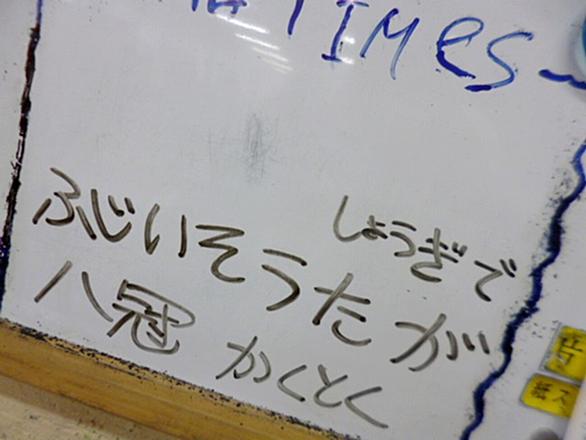 TIMES
しょうぎで
ふじいそうたが
八冠 かくとく